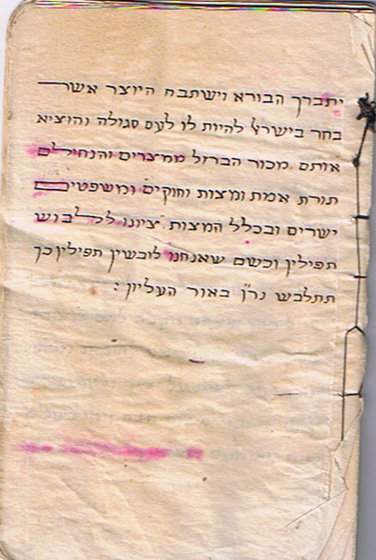 יתברך הבורא וישתבח היוצר אשר
בחר בישראל להיות לו לעם סגולה והוציא
אותם מכור הברזל ממצרים והנחילם
תורת אמת ומצות וחוקים ומשפטים
ישרים ובכלל המצות ציונו ללבוש
תפילין וכשם שאנחנו לובשין תפילין כך
תתלבש נר״ן באור העליון :